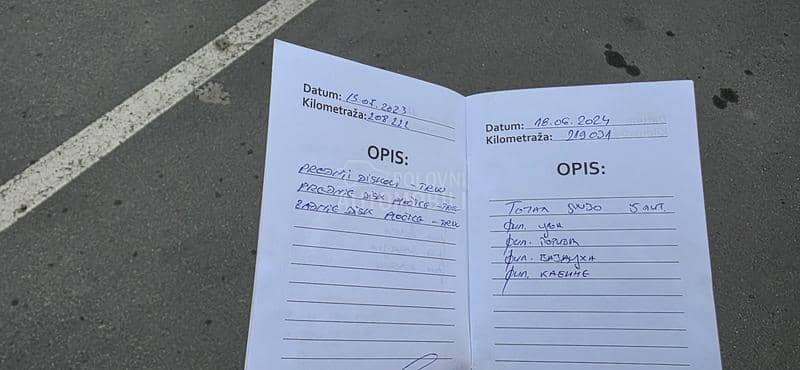 Datum: 15.08.2023
Kilometraža: 208.222
OPIS:
PREDNJI DISKOVI - TRW
PREDNJE DISK PLOČICE - TRW
ZADNJE DISK PLOČICE - TRW
Datum: 18.06.2024
Kilometraža: 219031
OPIS:
Тотал 5W30 5 лит.
Фил. уља
Фил. горива
Фил. ваздуха
Фил. кабине